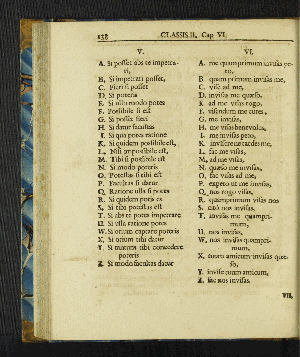 138 CLASSIS II. Cap VI.
V.
A. Si posset abs te impetra-
ri,
B. Si impetrari posset,
C. Fieri si posset
D. Si poteris
E. Si ullo modo potes
F. Possibile si est
G. Si possit fieri
H. Si datur facultas
I. Si qua potes ratione
K. Si quidem possibile est,
L. Nisi impossibile est,
M. Tibi si possibile est
N. Si modo poteris
O. Potestas si tibi est
P. Facultas si datur
Q. Ratione ulla si potes
R. Si quidem potis es
S. Si tibi potestas est
T. Si abs te potes impetrare
U. Si ulla ratione potes
W. Si otium capere poteris
X. Si otium tibi datur
Y. Si tantum tibi concedere
poteris
Z. Si modo facultas datur
VI.
A. me quam primum invisas ve-
lo,
B. quam primum invisas me,
C. vise ad me,
D. invisas me quæso.
E. ad me visas rogo,
F. visendum me cures,
G. me invisas,
H. me visas benevolus,
I. me invisas peto,
K. invisere ne tardes me,
L. fac me visas,
M. ad me visas,
N. quæso me invisas,
O. fac visas ad me,
P. expeto ut me invisas,
Q. nos rogo visas,
R. quamprimum visas nos
S. cito nos invisas.
T. invisas me quampri-
mum,
U. nos invisas,
W. nos invisas quampri-
mum,
X. tuum amicum invisas quæ-
so,
Y. invise tuum amicum,
Z. fac nos invisas.
VII.